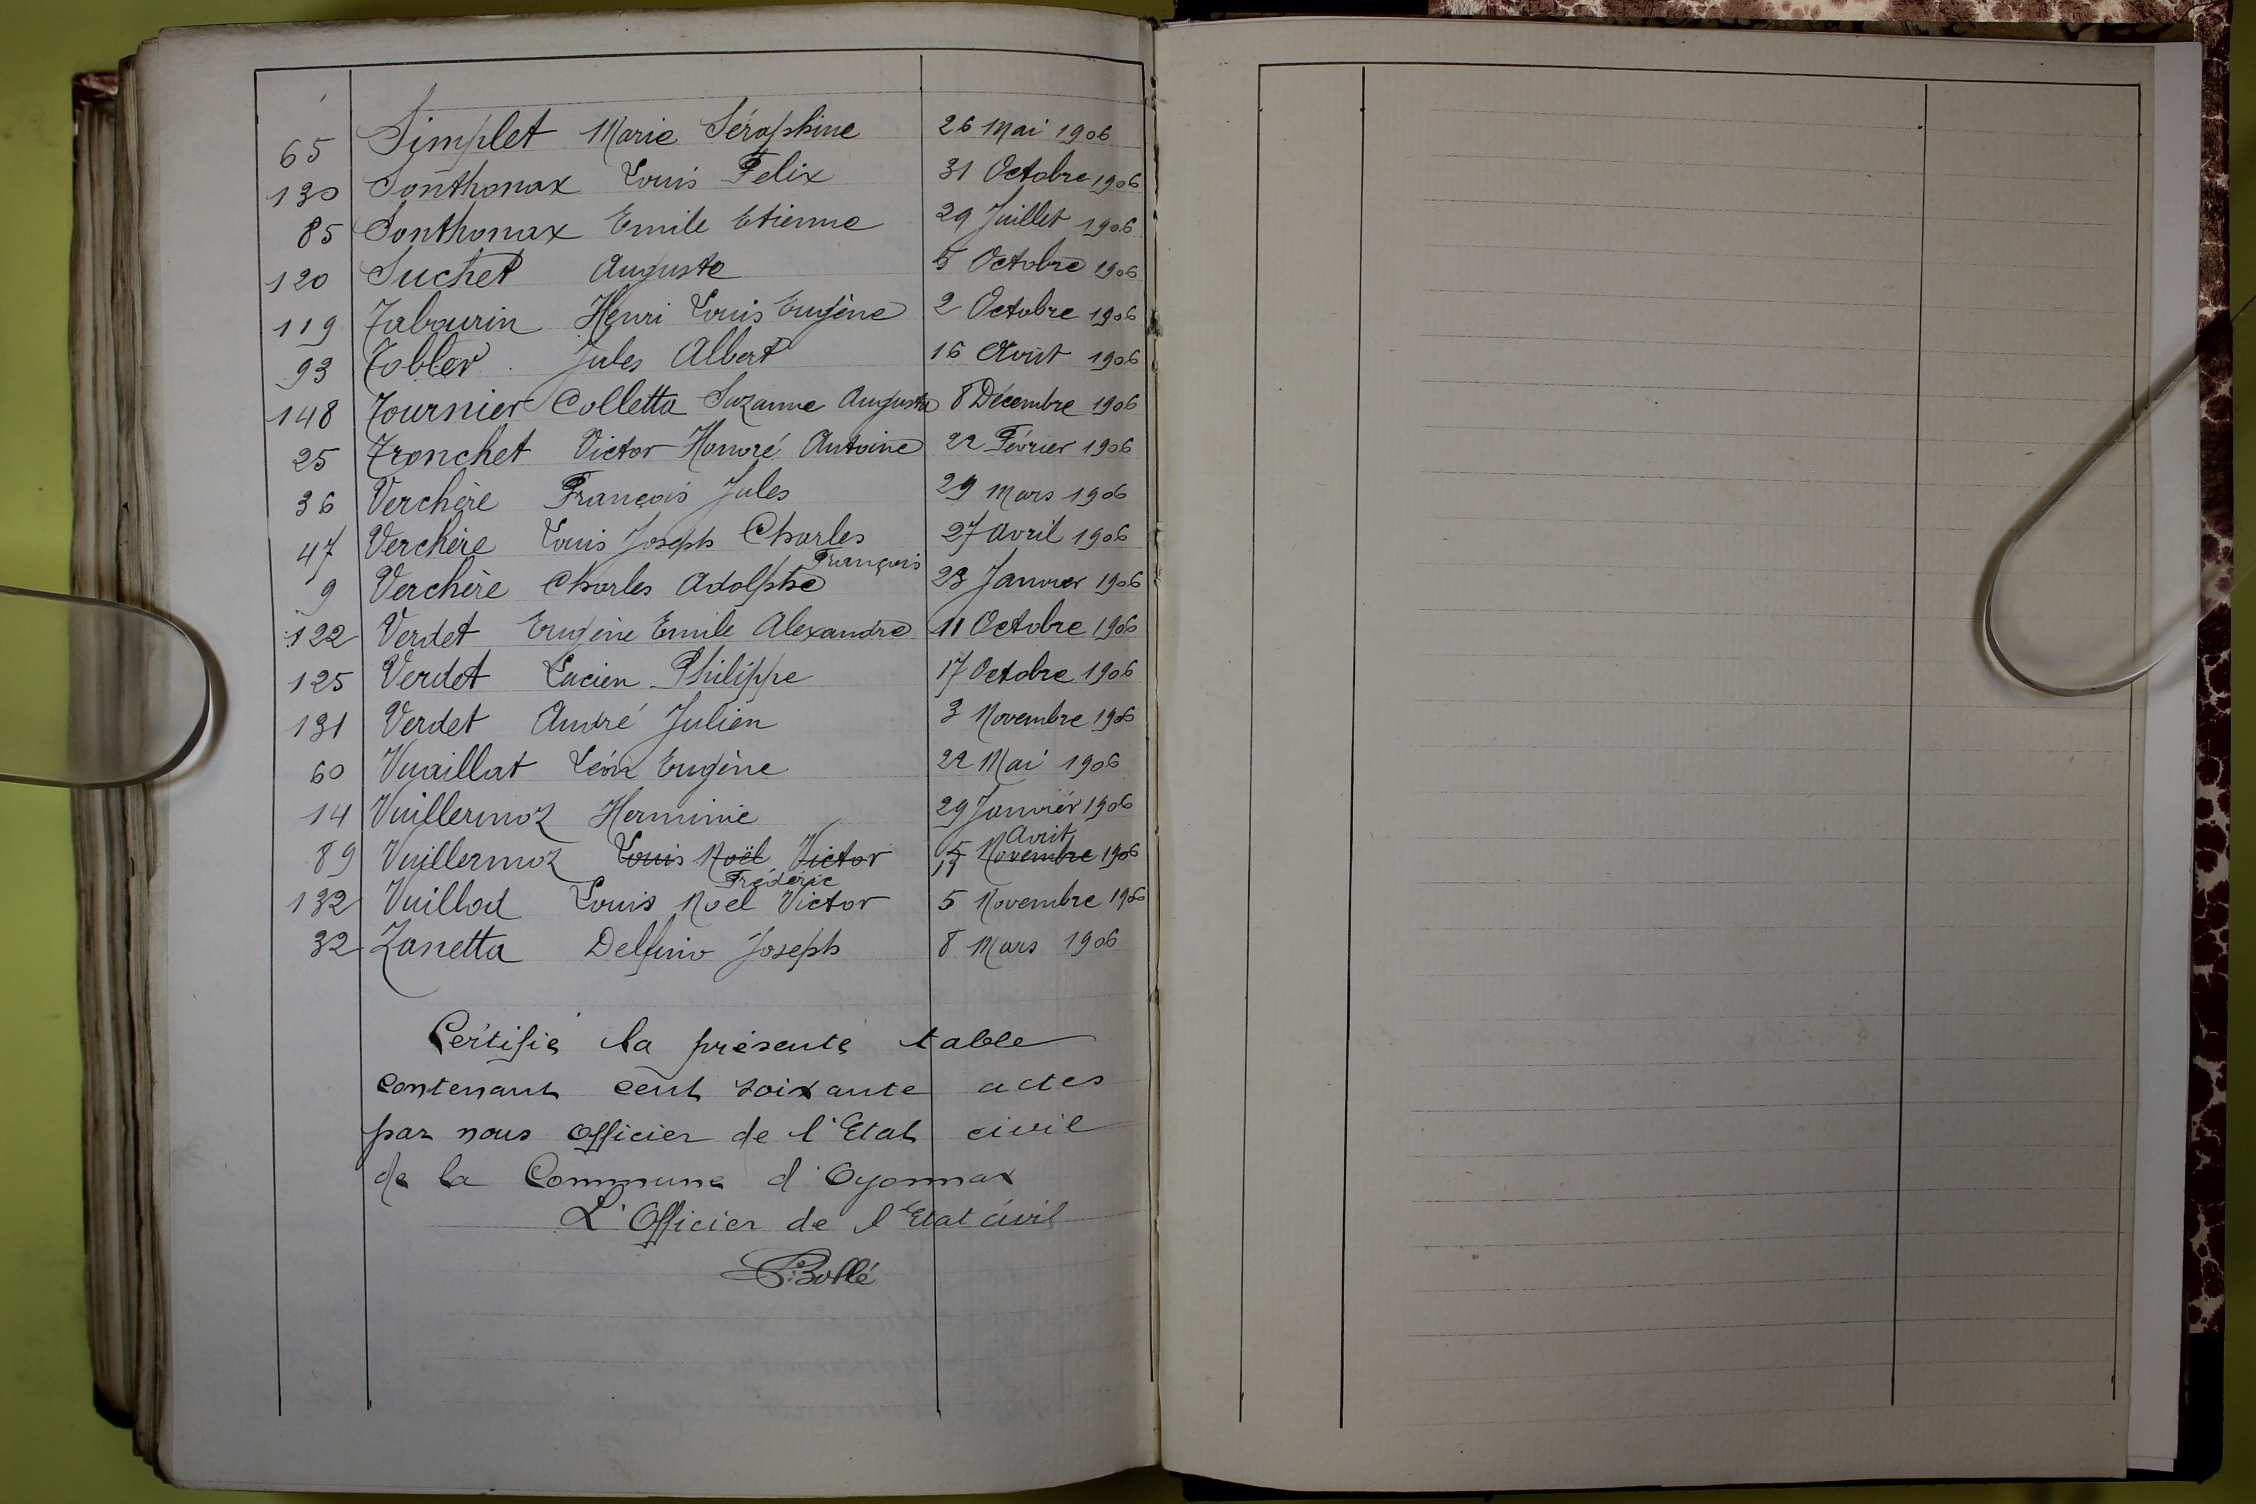 65 Simplet Marie Séraphine 26 Mai 1906
130 Sonthonax Louis Felix 31 Octobre 1906
85 Sonthonax Emile Etienne 29 Juillet 1906
120 Suchet Auguste 5 Octobre 1906
119 Tabourin Henri Louis Eugène 2 Octobre 1906
93 Tobler Jules Albert 16 Août 1906
148 Tournier Colletta Suzanne Augusta 8 Décembre 1906
25 Tronchet Victor Honoré Antoine 22 Février 1906
36 Verchère François Jules 29 Mars 1906
47 Verchère Louis Joseph Charles 27 Avril 1906
François
9 Verchère Charles Adolphe 23 Janvier 1906
122 Verdet Eugène Emile Alexandre 11 Octobre 1906
125 Verdet Lucien Philippe 17 Octobre 1906
131 Verdet André Julien 3 Novembre 1906
60 Vuaillat Léon Eugène 22 Mai 1906
14 Vuillermoz Herminie 29 Janvier 1906
Août
89 Vuillermoz Louis Noël Victor 5 Novembre 1906
Frédéric
132 Vuillod Louis Noel Victor 5 Novembre 1906
32 Zanetta Delfino Joseph 8 Mars 1906
Certifié la présente table
contenant cent soixante actes
par nous Officier de l'Etat civil
de la Commune d'Oyonnax
L'Officier de l'Etat civil